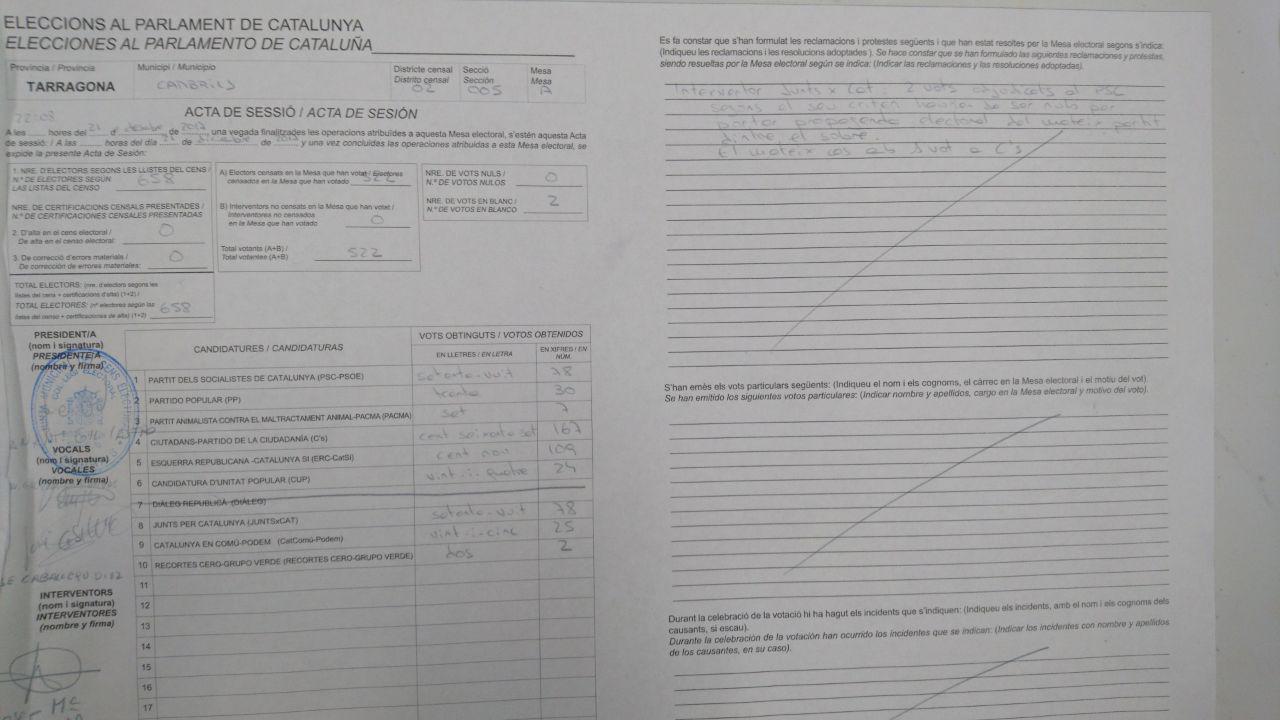 ELECCIONS AL PARLAMENT DE CATALUNYA
ELECCIONES AL PARLAMENTO DE CATALUÑA
Província / Provincia
TARRAGONA
Municipi / Municipio
CAMBRILS
Districte censal
Distrito censal
02
Secció
Sección
005
Mesa
Mesa
A
ACTA DE SESSIÓ / ACTA DE SESIÓN
22:08
A les hores del 21 d' desembre de 2017 una vegada finalitzades les operacions atribuïdes a aquesta Mesa electoral, s'estén aquesta Acta
de sessió: / A las hores del día 21 de diciembre de y una vez concluidas las operaciones atribuidas a esta Mesa electoral, se
expide la presente Acta de Sesión:
1. NRE. D'ELECTORS SEGONS LES LLISTES DEL CENS /
N.º DE ELECTORES SEGÚN
LAS LISTAS DEL CENSO 658
NRE. DE CERTIFICACIONS CENSALS PRESENTADES /
N.º DE CERTIFICACIONES CENSALES PRESENTADAS
2. D'alta en el cens electoral / 0
De alta en el censo electoral:
3. De correcció d'errors materials / 0
De corrección de errores materiales:
TOTAL ELECTORS: (nre. d'electors segons les
llistes del cens + certificacions d'alta) (1+2) /
TOTAL ELECTORES: (nº electores según las
listas del censo + certificaciones de alta) (1+2) 658
A) Electors censats en la Mesa que han votat / Electores
censados en la Mesa que han votado 522
B) Interventors no censats en la Mesa que han votat /
Interventores no censados
en la Mesa que han votado 0
Total votants (A+B) /
Total votantes (A+B) 522
NRE. DE VOTS NULS /
N.º DE VOTOS NULOS 0
NRE. DE VOTS EN BLANC /
N.º DE VOTOS EN BLANCO 2
PRESIDENT/A
(nom i signatura)
PRESIDENTE/A
(nombre y firma)
VOCALS
(nom i signatura)
VOCALES
(nombre y firma)
INTERVENTORS
(nom i signatura)
INTERVENTORES
(nombre y firma)
CANDIDATURES / CANDIDATURAS
VOTS OBTINGUTS / VOTOS OBTENIDOS
EN LLETRES / EN LETRA
EN XIFRES / EN NÚM.
1 PARTIT DELS SOCIALISTES DE CATALUNYA (PSC-PSOE) setanta-vuit 78
2 PARTIDO POPULAR (PP) trenta 30
3 PARTIT ANIMALISTA CONTRA EL MALTRACTAMENT ANIMAL-PACMA (PACMA) set 7
4 CIUTADANS-PARTIDO DE LA CIUDADANÍA (C's) cent seixanta set 167
5 ESQUERRA REPUBLICANA -CATALUNYA SI (ERC-CatSí) cent nou 109
6 CANDIDATURA D'UNITAT POPULAR (CUP) vint-i-quatre 24
7 DIÀLEG REPUBLICÀ (DIÀLEG)
8 JUNTS PER CATALUNYA (JUNTSxCAT) setanta-vuit 78
9 CATALUNYA EN COMÚ-PODEM (CatComú-Podem) vint-i-cinc 25
10 RECORTES CERO-GRUPO VERDE (RECORTES CERO-GRUPO VERDE) dos 2
11
12
13
14
15
16
17
Es fa constar que s'han formulat les reclamacions i protestes següents i que han estat resoltes per la Mesa electoral segons s'indica:
(Indiqueu les reclamacions i les resolucions adoptades ). Se hace constar que se han formulado las siguientes reclamaciones y protestas,
siendo resueltas por la Mesa electoral según se indica: (Indicar las reclamaciones y las resoluciones adoptadas).
Interventor Junts x Cat: 2 vots adjudicats al PSC
segons el seu criteri haurien de ser nuls per
portar propaganda electoral del mateix partit
dintre el sobre.
El mateix cas amb 1 vot a C's
S'han emès els vots particulars següents: (Indiqueu el nom i els cognoms, el càrrec en la Mesa electoral i el motiu del vot).
Se han emitido los siguientes votos particulares: (Indicar nombre y apellidos, cargo en la Mesa electoral y motivo del voto).
Durant la celebració de la votació hi ha hagut els incidents que s'indiquen: (Indiqueu els incidents, amb el nom i els cognoms dels
causants, si escau).
Durante la celebración de la votación han ocurrido los incidentes que se indican: (Indicar los incidentes con nombre y apellidos
de los causantes, en su caso).